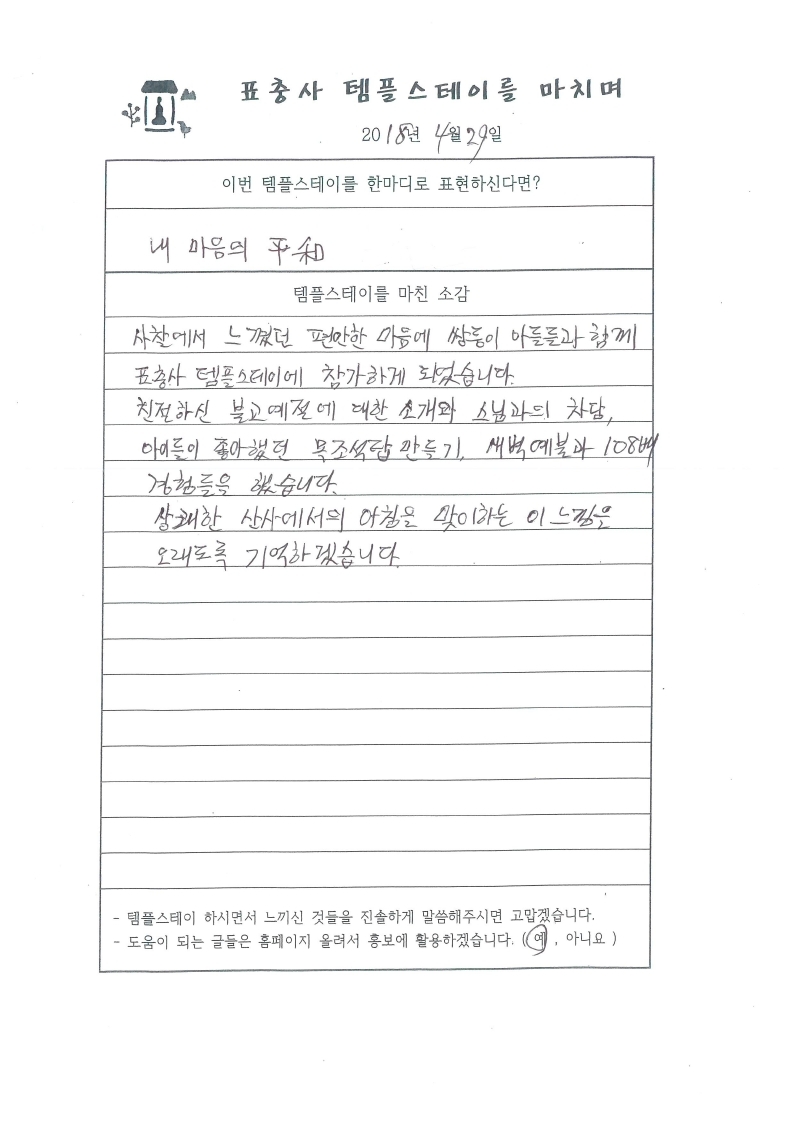 표충사 템플스테이를 마치며
2018년 4월 29일
이번 템플스테이를 한마디로 표현하신다면?
내 마음의 平和
템플스테이를 마친 소감
사찰에서 느꼈던 편안한 마음에 쌍둥이 아들들과 함께
표충사 템플스테이에 참가하게 되었습니다.
친절하신 불교예절에 대한 소개와 스님과의 차담,
아이들이 좋아했던 목조석탑 만들기, 새벽예불과 108배
경험들을 했습니다.
상쾌한 산사에서의 아침을 맞이하는 이 느낌은
오래도록 기억하겠습니다.
- 템플스테이 하시면서 느끼신 것들을 진솔하게 말씀해주시면 고맙겠습니다.
- 도움이 되는 글들은 홈페이지 올려서 홍보에 활용하겠습니다. ( 예 , 아니요 )